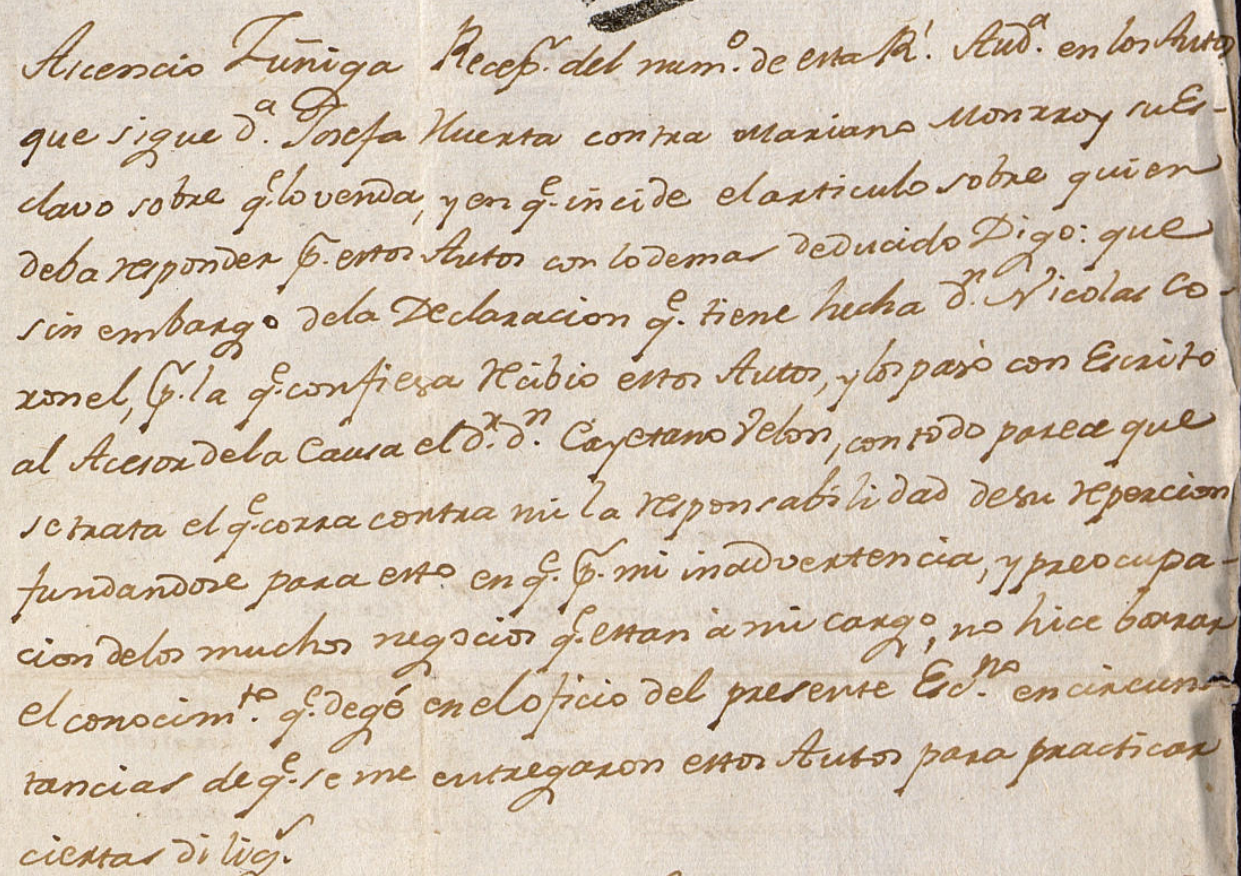 Ascencio Zuñiga Recepr. del numo. de esta Rl. Auda. en los Autos
que sigue Da. Josefa Huerta contra Mariano Monrroy su Es-
clavo sobre qe. lo venda, y en qe. incide el articulo sobre quien
deba responder pr. estos Autos con lo demas deducido Digo: que
sin embargo dela Declaracion qe. tiene hecha Dn. Nicolas Co-
ronel, pr. la qe. confiesa recibio estos Autos, y los pasó con Escrito
al Acesor dela Causa el Dr. Dn. Cayetano Velon, con todo parece que
se trata el qe. corra contra mi la responsabilidad de su repercion
fundandose para esto en qe. pr. mi inadvertencia, y preocupa-
cion delos muchos negocios qe. estan á mi cargo, no hice borrar
el conocimto. qe. degé en el oficio del presente Escno. en circuns-
tancias de qe. se me entregaron estos Autos para practicar
ciertas diligs.